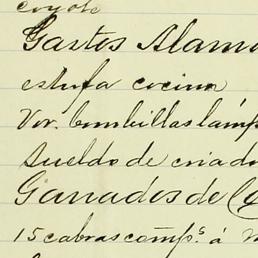 coyote
Gastos Alam
estufa cocina
Vor. bombillas lámp
Sueldo de criado
Ganados de C
15 cabras comp.s á